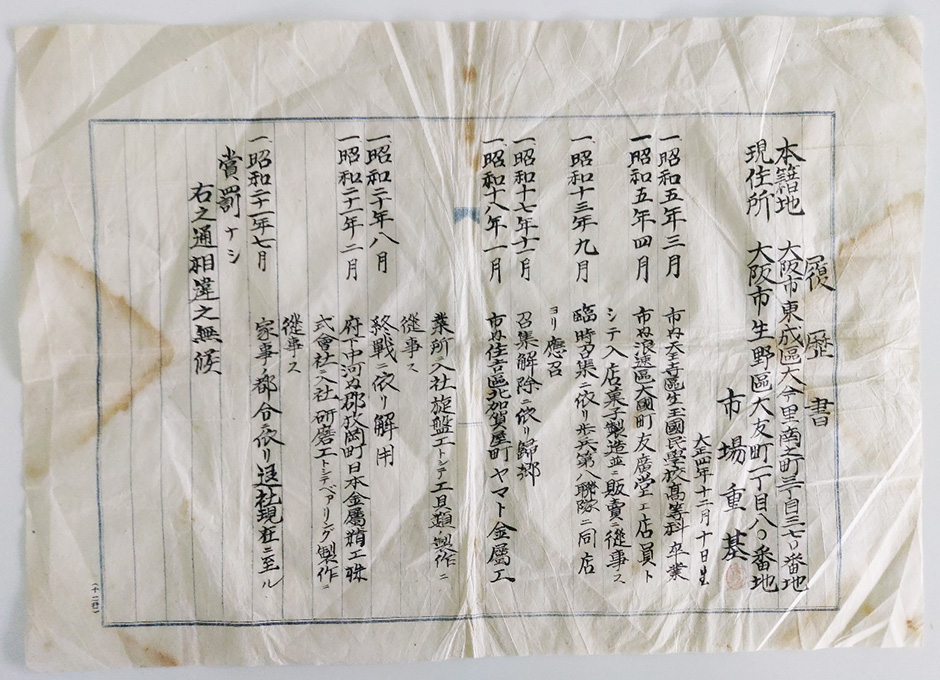 履歴書
本籍地 大阪市東成區大今里南之町三丁目三七〇番地
現住所 大阪市生野區大友町一丁目八〇番地
市場重基
大正四年十二月十日生
一昭和五年三月 市内天王寺區生玉國民學校高等科卒業
一昭和五年四月 市内浪速區大國町友廣堂ニ店員ト
シテ入店菓子製造並ニ販賣ニ從事ス
一昭和十三年九月 臨時召集ニ依リ歩兵第八聯隊ニ同店
ヨリ應召
一昭和十七年十一月 召集解除ニ依リ歸郷
一昭和十八年一月 市内住吉區北加賀屋町ヤマト金属工
業所ニ入社旋盤工トシテ工具類ノ製作ニ
從事ス
一昭和二十年八月 終戦ニ依リ解用
一昭和二十一年二月 府下中河内郡枚岡町日本金属精工株
式會社ニ入社研磨工トシテベアリング製作ニ
從事ス
一昭和二十一年七月 家事ノ都合ニ依リ退社現在ニ至ル
賞罰ナシ
右之通相違之無候